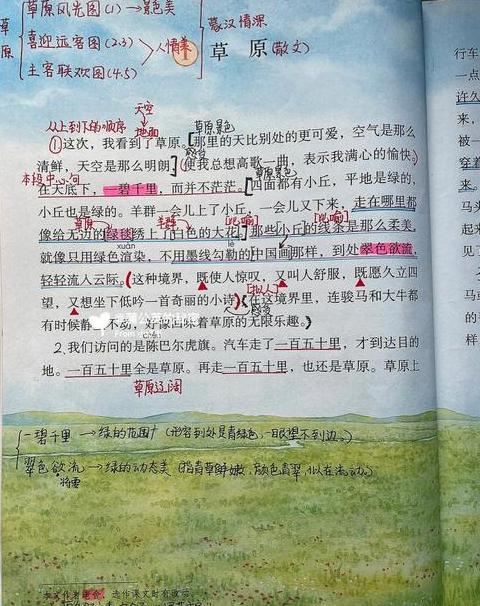 草原风光图(1)→景色美
喜迎远客图(2.3)
主客联欢图(4.5)
人情美
蒙汉情深
草原
1 草原(散文)
天空
从上到下的顺序 地面 草原景色
①这次，我看到了草原。那里的天比别处的更可爱，空气是那么
清鲜，天空是那么明朗，使我总想高歌一曲，表示我满心的愉快。
本段中心句
在天底下，一碧千里，而并不茫茫。四面都有小丘，平地是绿的，
小丘也是绿的。羊群一会儿上了小丘，一会儿又下来，走在哪里都
草原 羊群 [比喻] [比喻]
像给无边的绿毯绣上了白色的大花。那些小丘的线条是那么柔美，
xuàn lè
就像只用绿色渲染，不用墨线勾勒的中国画那样，到处翠色欲流，
轻轻流入云际。这种境界，既使人惊叹，又叫人舒服，既愿久立四
[拟人]
望，又想坐下低吟一首奇丽的小诗。在这境界里，连骏马和大牛都
有时候静立不动，好像回味着草原的无限乐趣。
2.我们访问的是陈巴尔虎旗。汽车走了一百五十里，才到达目的
地。一百五十里全是草原。再走一百五十里，也还是草原。草原上
草原辽阔
一碧千里→绿的范围广(形容到处是青绿色，一眼望不到边。)
翠色欲流→绿的动态美(指青草鲜嫩，颜色青翠，似在流动)
将要
本文作者老舍，选作课文时有改动。
行车
一点
许久
来，
被一
穿着
来。
马头
起来
见
马或
的看
样